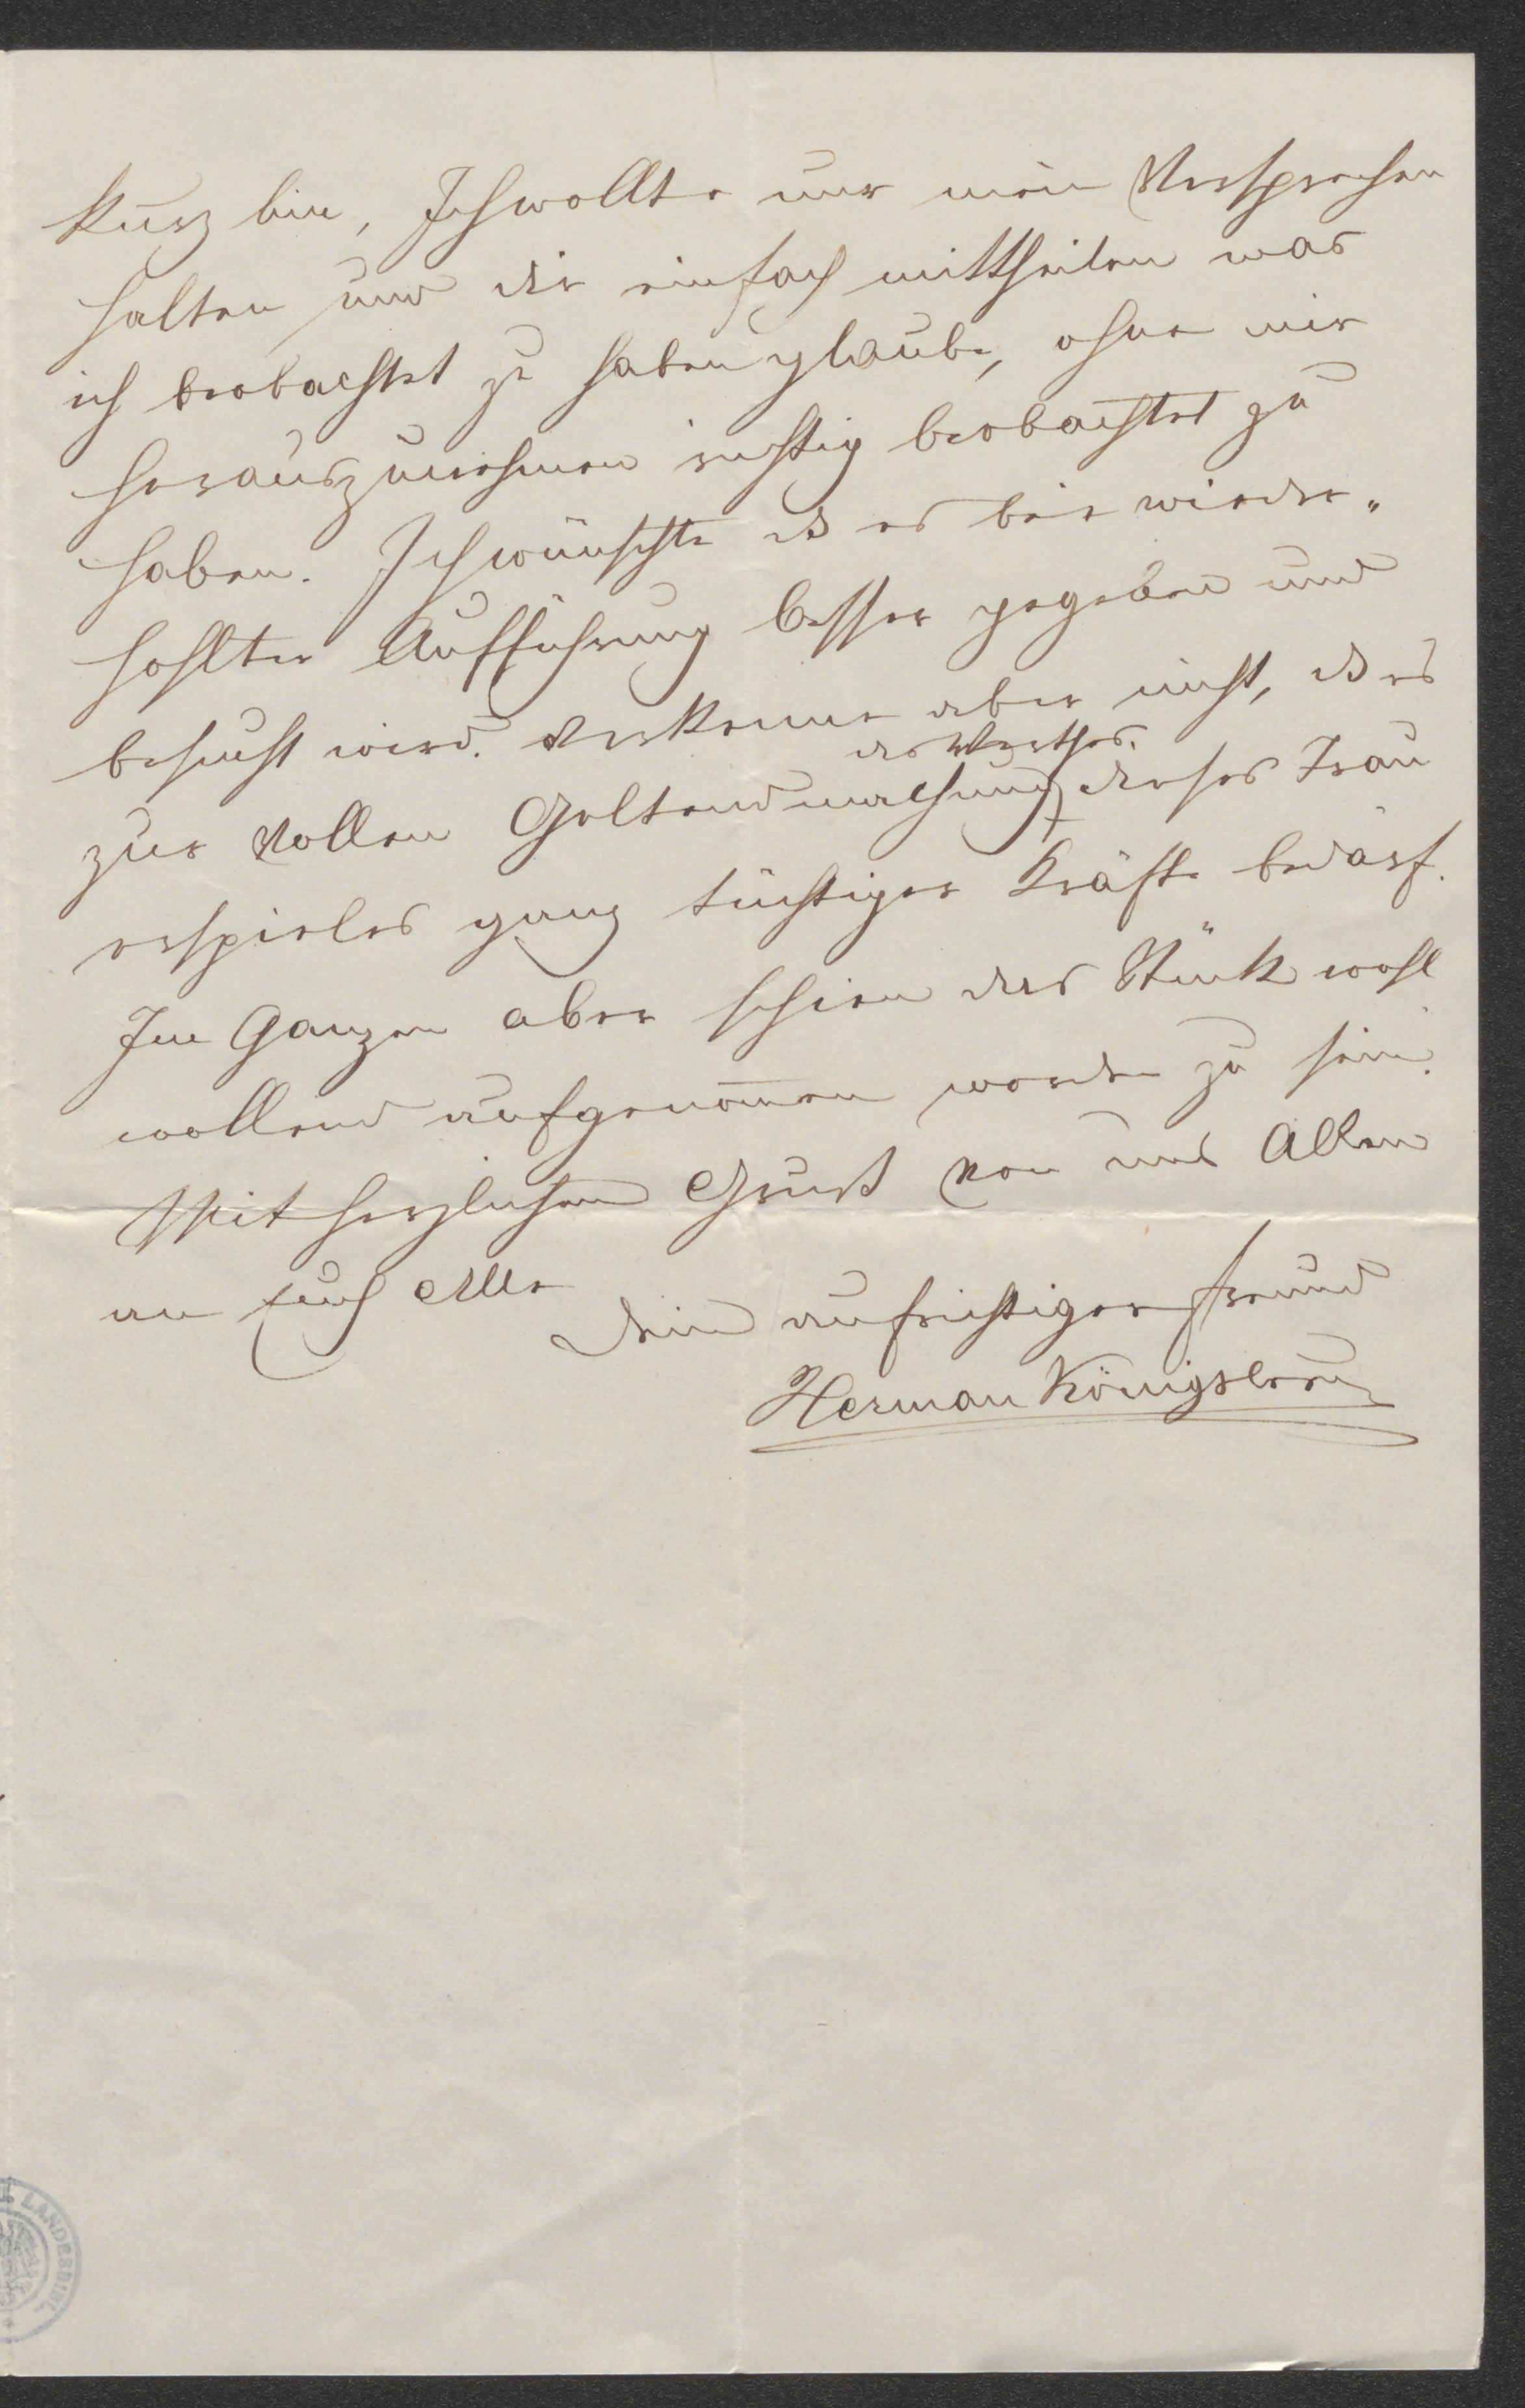 kurz bin, Ich wollte nur mein Versprechen
halten und dir einfach mittheilen was
ich beobachtet zu haben glaube, ohne mir
herauszunehmen richtig beobachtet zu
haben. Ich wünschte es bei wieder„
hohlter Aufführung besser gegeben und
besucht wird. verkenne aber nicht, es
des Werthes
zur vollen Geltendmachung dieses Trau
erspieles ganz tüchtiger Kräfte bedarf.
Im Ganzen aber schien das Stück wohl
wollend aufgenom̄en worden zu sein.
Mit herzlichem Gruß von uns Allen
an Euch Alle
dein aufrichtiger Freund
Herman Königsbrun
LANDESBIBL.